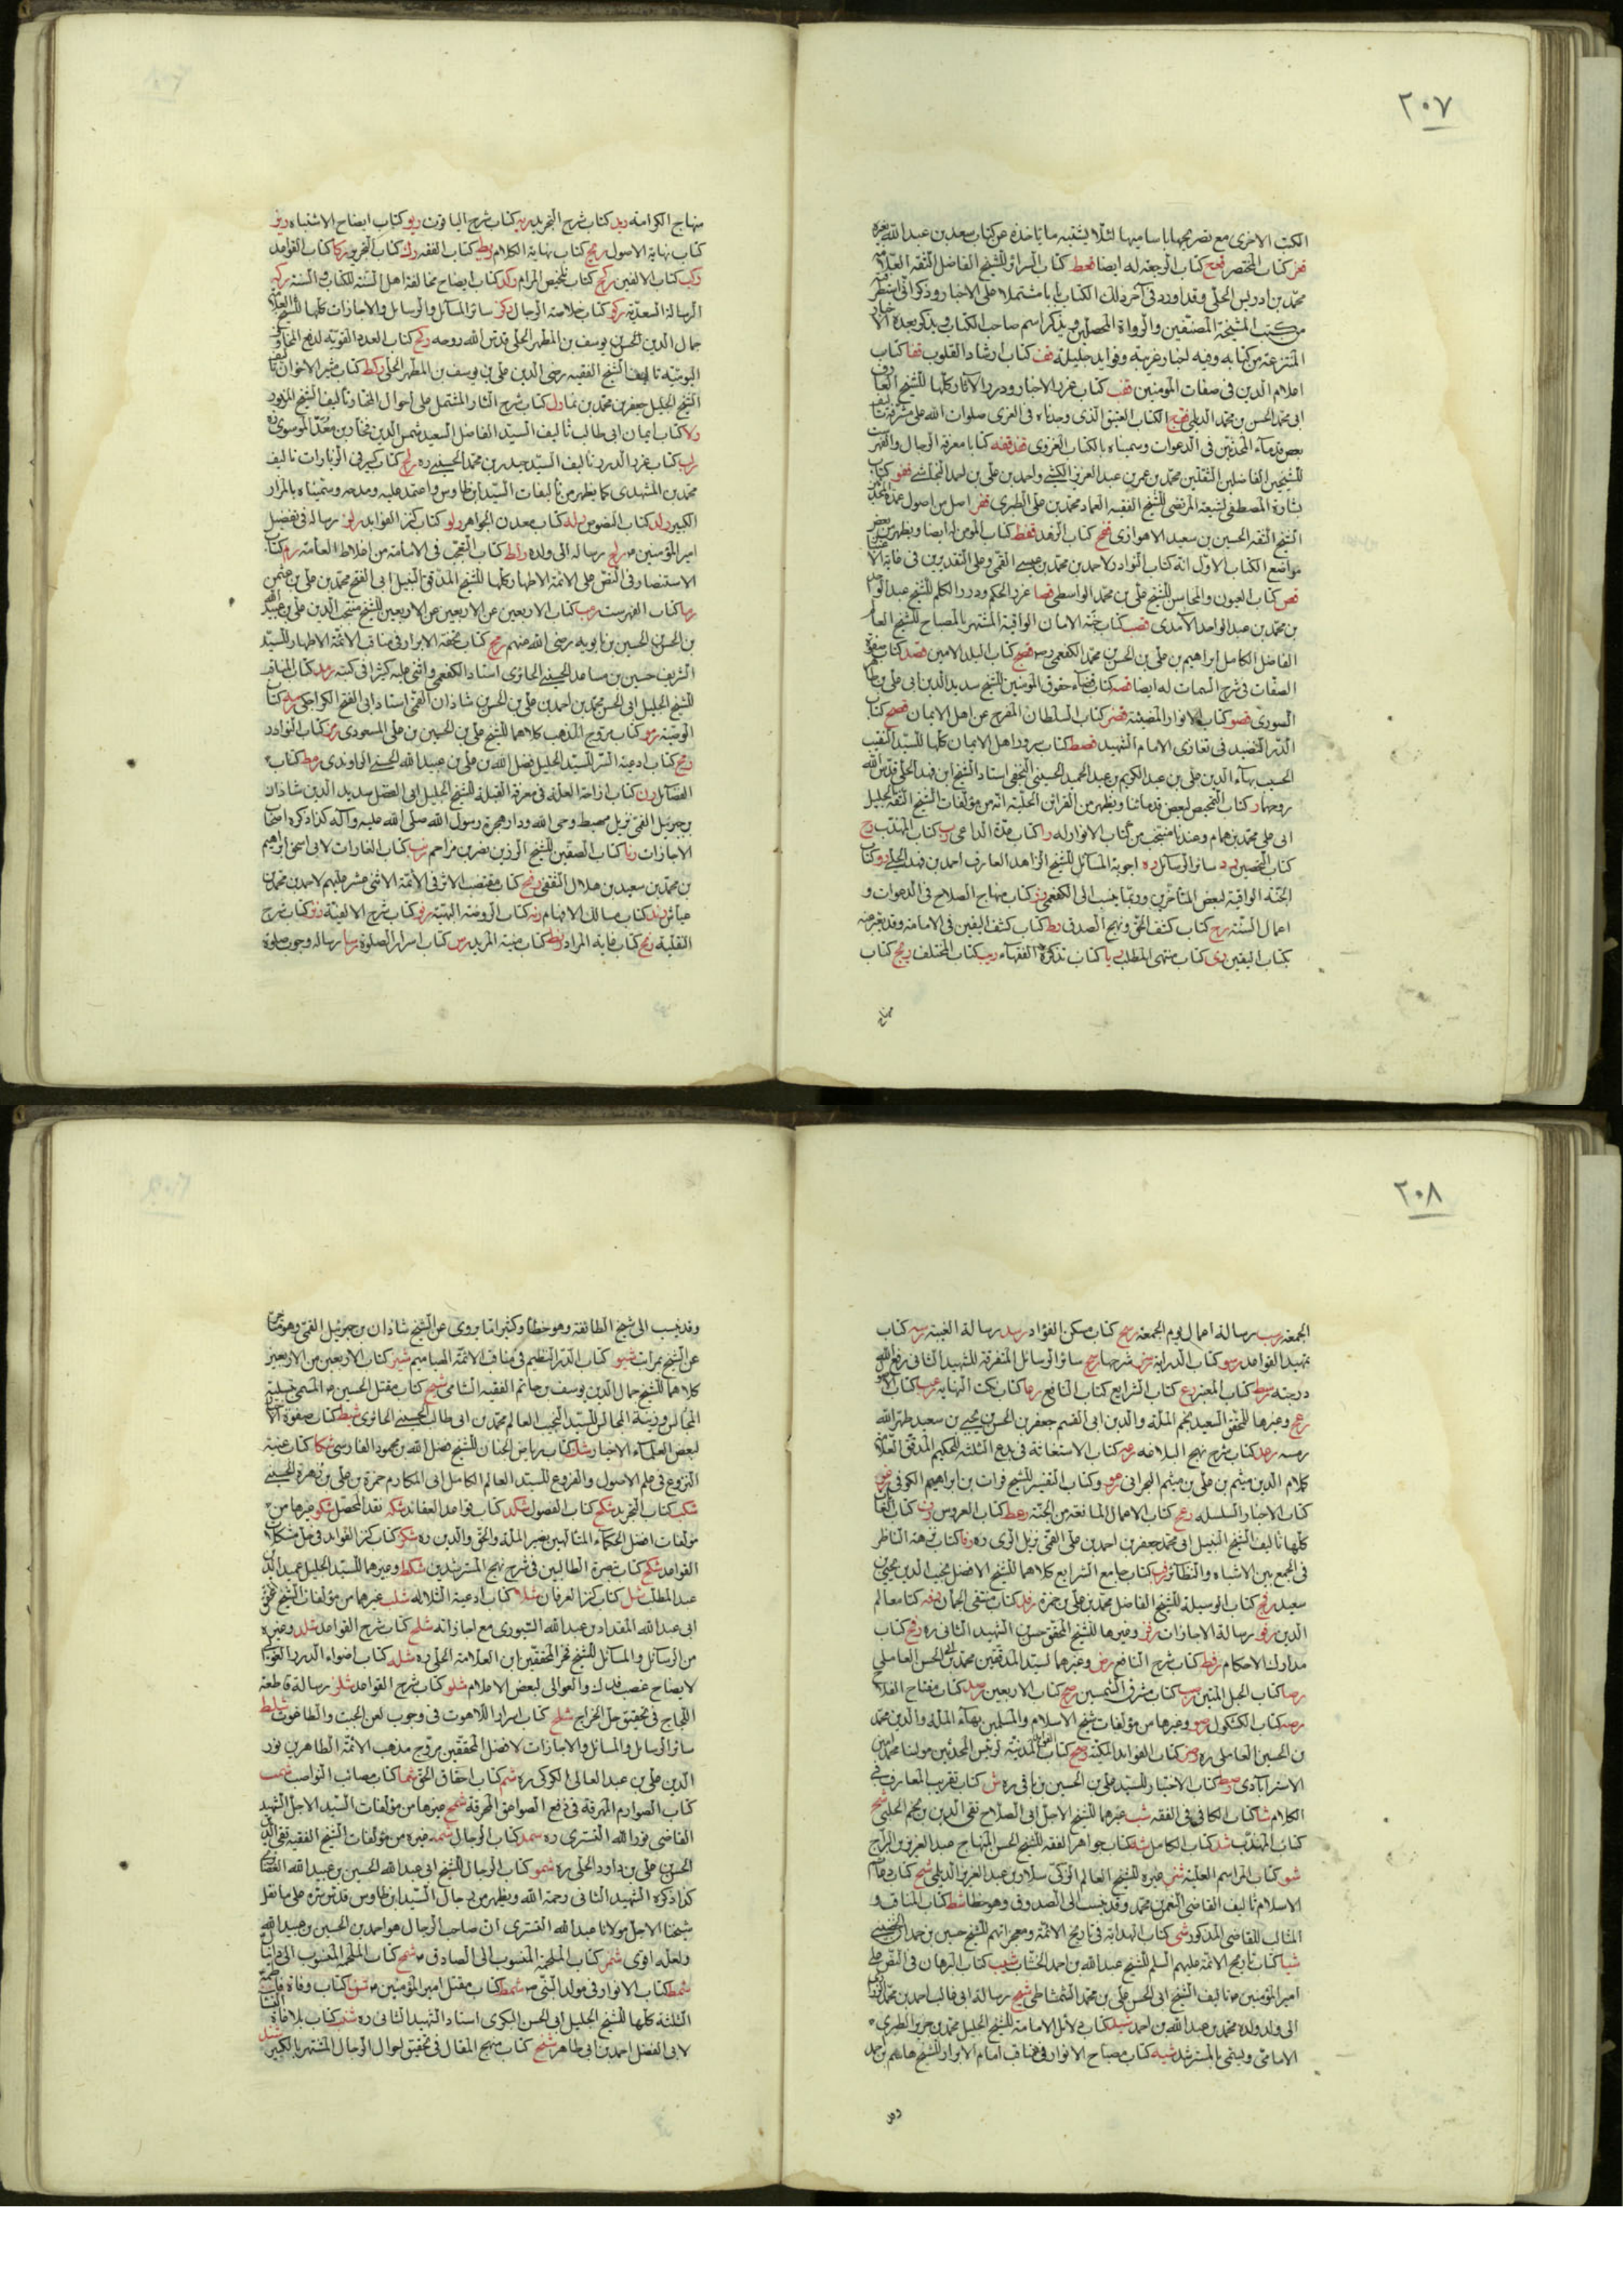 ٢٠٧
الكتب الاخرى مع تصريحها باساميها لئلا يشتبه ما ياخذه عن كتاب سعد بن عبد الله بغيره
قعز كتاب المختصر قعح كتاب الرجعة له ايضا قعط كتاب السرائر للشيخ الفاضل الثقة العلامة
محمد بن ادريس الحلى وقد اورد فى آخر ذلك الكتاب بابا مشتملا على الاخبار وذكر انى استطرفته
من كتب المشيخة المصنفين والرواة المحصلين ويذكر اسم صاحب الكتاب ويذكر بعده الاخبار
المنتزعة من كتابه وفيه اخبار غريبة وفوايد جليلة قف كتاب ارشاد القلوب قفا كتاب
اعلام الدين فى صفات المومنين قفب كتاب غرر الاخبار ودرر الآثار كلها للشيخ العارف
ابى محمد الحسن بن محمد الديلمى قفج الكتاب العتيق الذى وجدناه فى الغرى صلوات الله على مشرفه تاليف
بعض قدماء المحدثين فى الدعوات وسميناه بالكتاب الغروى قفد قفه كتابا معرفة الرجال والفهرست
للشيخين الفاضلين الثقتين محمد بن عمر بن عبد العزيز الكشى واحمد بن على بن احمد النجاشى قفو كتاب
بشارة المصطفى لشيعة المرتضى للشيخ الفقيه العماد محمد بن على الطبرى قفز اصل من اصول عمدة المحدثين
الشيخ الثقة الحسين بن سعيد الاهوازى قفح كتاب الزهد قفط كتاب المومن له ايضا ويظهر من بعض
مواضع الكتاب الاول انه كتاب النوادر لاحمد بن محمد بن عيسى القمى وعلى التقديرين فى غاية الاعتبار
قص كتاب العيون والمحاسن للشيخ على بن محمد الواسطى قصا غرر الحكم ودرر الكلم للشيخ عبد الواحد
بن محمد بن عبد الواحد الآمدى قصب كتاب جنة الامان الواقية المشتهر بالمصباح للشيخ العالم
الفاضل الكامل ابراهيم بن على بن الحسن بن محمد الكفعمى ره قصج كتاب البلد الامين قصد كتاب صفوة
الصفات فى شرح السمات له ايضا قصه كتاب قضاء حقوق المومنين للشيخ سديد الدين ابى على بن طاهر
السورى قصو كتاب الانوار المضيئة قصز كتاب السلطان المفرج عن اهل الايمان قصح كتاب
الدر النضيد فى تعازى الامام الشهيد قصط كتاب سرور اهل الايمان كلها للسيد النقيب
الحسيب بهاء الدين على بن عبد الكريم بن عبد الحميد الحسينى النجفى استاد الشيخ ابن فهد الحلى قدس الله
روحهما ر كتاب التمحيص لبعض قدمائنا ويظهر من القراين الجلية انه من مؤلفات الشيخ الثقة الجليل
ابى على محمد بن همام وعندنا منتخب من كتاب الانوار له را كتاب عدة الداعى رب كتاب المهذب رج
كتاب التحصين رد سائر الرسائل ره اجوبة المسائل للشيخ الزاهد العارف احمد بن فهد الحلى رو كتاب
الجنة الواقية لبعض المتأخرين وربما ينسب الى الكفعمى رز كتاب منهاج الصلاح فى الدعوات و
اعمال السنة رح كتاب كشف الحق ونهج الصدق رط كتاب كشف اليقين فى الامامة وقد يعبر عنه
بكتاب اليقين رى كتاب منتهى المطلب ريا كتاب تذكرة الفقهاء ريب كتاب المختلف ريج كتاب
منهاج
منهاج الكرامة ريد كتاب شرح التجريد ريه كتاب شرح الياقوت ريو كتاب ايضاح الاشتباه ريز
كتاب نهاية الاصول ريح كتاب نهاية الكلام ريط كتاب الفقه رك كتاب التحرير ركا كتاب القواعد
ركب كتاب الالفين ركج كتاب تلخيص المرام ركد كتاب ايضاح مخالفة اهل السنة للكتاب والسنة ركه
الرسالة السعدية ركو كتاب خلاصة الرجال ركز سائر المسائل والرسايل والاجازات كلها للشيخ العلامة
جمال الدين الحسن بن يوسف بن المطهر الحلى قدس الله روحه ركح كتاب العدد القوية لدفع المخاوف
اليومية تاليف الشيخ الفقيه رضى الدين على بن يوسف بن المطهر الحلى ركط كتاب مثير الاحزان تاليف
الشيخ الجليل جعفر بن محمد بن نما رل كتاب شرح الثار المشتمل على احوال المختار تاليف الشيخ المزبور
رلا كتاب ايمان ابى طالب تاليف السيد الفاضل السعيد شمس الدين فخار بن معد الموسوى ره
رلب كتاب غرر الدرر تاليف السيد حيدر بن محمد الحسينى ره رلج كتاب كبير فى الزيارات تاليف
محمد بن المشهدى كما يظهر من تاليفات السيد ابن طاوس واعتمد عليه ومدحه وسميناه بالمزار
الكبير رلد كتاب النصوص رله كتاب معدن الجواهر رلو كتاب كنز الفوايد رلز رسالة فى تفضيل
امير المؤمنين ع رلح رسالة الى ولده رلط كتاب التعجب فى الامامة من اغلاط العامة رم كتاب
الاستنصار فى النص على الائمة الاطهار كلها للشيخ المدقق النبيل ابى الفتح محمد بن على بن عثمن
رما كتاب الفهرست رمب كتاب الاربعين عن الاربعين عن الاربعين للشيخ منتجب الدين على بن عبيد الله
بن الحسن بن الحسين بن بابويه رضى الله عنهم رمج كتاب تحفة الابرار فى مناقب الائمة الاطهار للسيد
الشريف حسين بن مساعد الحسينى الحائرى استاد الكفعمى واثنى عليه كثيرا فى كتبه رمد كتاب المناقب
للشيخ الجليل ابى الحسن محمد بن احمد بن على بن الحسن بن شاذان القمى استاد ابى الفتح الكراجكى رمه كتاب
الوصية رمو كتاب مروج الذهب كلاهما للشيخ على بن الحسين بن على المسعودى رمز كتاب النوادر
رمح كتاب ادعية السر للسيد الجليل فضل الله بن على بن عبيد الله الحسنى الراوندى رمط كتاب
الفضائل رن كتاب ازاحة العلة فى معرفة القبلة للشيخ الجليل ابى الفضل سديد الدين شاذان
بن جبرئيل القمى نزيل مهبط وحى الله ودار هجرة رسول الله صلى الله عليه وآله كذا ذكره اصحاب
الاجازات رنا كتاب الصفين للشيخ الرزين نصر بن مزاحم رنب كتاب الغارات لابى اسحق ابراهيم
بن محمد بن سعيد بن هلال الثقفى رنج كتاب مقتضب الاثر فى الائمة الاثنى عشر عليهم لاحمد بن محمد بن
عياش رند كتاب مسالك الافهام رنه كتاب الروضة البهية رنو كتاب شرح الالفية رنز كتاب شرح
النفلية رنح كتاب غاية المراد رنط كتاب منية المريد رس كتاب اسرار الصلوة رسا رسالة وجوب صلوة
٢٠٨
الجمعة رسب رسالة اعمال يوم الجمعة رسج كتاب مسكن الفؤاد رسد رسالة الغيبة رسه كتاب
تمهيد القواعد رسو كتاب الدراية رسز شرحها رسح سائر الرسائل المتفرقة للشهيد الثانى رفع الله
درجته رسط كتاب المعتبر رع كتاب الشرايع كتاب النافع رعا كتاب نكت النهاية رعب كتاب الاصول
رعج وغيرها للمحقق السعيد نجم الملة والدين ابى القسم جعفر بن الحسن بن يحيى بن سعيد طهر الله
رمسه رعد كتاب شرح نهج البلاغة رعه كتاب الاستغاثة فى بدع الثلثة للحكيم المدقق العلامة
كلام الدين ميثم بن على بن ميثم البحرانى رعو وكتاب التفسير للشيخ فرات بن ابراهيم الكوفى رعز
كتاب الاخبار المسلسلة رعح كتاب الاعمال المانعة من الجنة رعط كتاب العروس رف كتاب الغايات
كلها تاليف الشيخ النبيل ابى محمد جعفر بن احمد بن على القمى نزيل الرى ره رفا كتاب نزهة الناظر
فى الجمع بين الاشباه والنظائر رفب كتاب جامع الشرايع كلاهما للشيخ الافضل نجيب الدين يحيى بن
سعيد رفج كتاب الوسيلة للشيخ الفاضل محمد بن على بن حمزة رفد كتاب منتقى الجمان رفه كتاب معالم
الدين رفو رسالة الاجازات رفز وغيرها للشيخ المحقق حسن بن الشهيد الثانى ره رفح كتاب
مدارك الاحكام رفط كتاب شرح النافع رص وغيرهما لسيد المدققين محمد بن ابى الحسن العاملى
رصا كتاب الحبل المتين رصب كتاب مشرق الشمسين رصج كتاب الاربعين رصد كتاب مفتاح الفلاح
رصه كتاب الكشكول رصو وغيرها من مؤلفات شيخ الاسلام والمسلمين بهاء الملة والدين محمد
بن الحسين العاملى ره رصز كتاب الفوايد المكية رصح كتاب الفوايد المدنية لرئيس المحدثين مولينا محمد امين
الاسترآبادى رصط كتاب الاختيار للسيد على بن الحسين بن باقى ره ش كتاب تقريب المعارف فى
الكلام شا كتاب الكافى فى الفقه شب غيرهما للشيخ الاجل ابى الصلاح تقى الدين بن نجم الحلبى شج
كتاب المهذب شد كتاب الكامل شه كتاب جواهر الفقه للشيخ الحسن المنهاج عبد العزيز بن البراج
شو كتاب المراسم العلية شز غيره للشيخ العالم الزكى سلار بن عبد العزيز الديلمى شح كتاب دعائم
الاسلام تاليف القاضى النعمن بن محمد وقد ينسب الى الصدوق وهو خطا شط كتاب المناقب و
المثالب للقاضى المذكور شى كتاب الهداية فى تاريخ الائمة ومعجزاتهم للشيخ حسين بن حمدان الحضينى
شيا كتاب تاريخ الائمة عليهم السلم للشيخ عبد الله بن احمد الخشاب شيب كتاب البرهان فى النص على
امير المؤمنين ع تاليف الشيخ ابى الحسن على بن محمد الشمشاطى شيج رسالة ابى غالب احمد بن محمد الزرارى
الى ولد ولده محمد بن عبد الله بن احمد شيد كتاب دلائل الامامة للشيخ الجليل محمد بن جرير الطبرى
الامامى ويسمى بالمسترشد شيه كتاب مصباح الانوار فى مناقب امام الابرار للشيخ هاشم بن احمد
وقد
وقد ينسب الى شيخ الطائفة وهو خطا وكثيرا ما يروى عن الشيخ شاذان بن جبرئيل القمى وهو متاخر
عن الشيخ بمرات شيو كتاب الدر النظيم فى مناقب الائمة اللهاميم شيز كتاب الاربعين من الاربعين
كلاهما للشيخ جمال الدين يوسف بن حاتم الفقيه الشامى شيح كتاب مقتل الحسين ع المسمى بتسلية
المجالس وزينة المجالس للسيد النجيب العالم محمد بن ابى طالب الحسينى الحائرى شيط كتاب صفوة الاخبار
لبعض العلماء الاخيار شك كتاب رياض الجنان للشيخ فضل الله بن محمود الفارسى شكا كتاب غنية
النزوع فى علم الاصول والفروع للسيد العالم الكامل ابى المكارم حمزة بن على بن زهرة الحسينى
شكب كتاب التجريد شكج كتاب الفصول شكد كتاب قواعد العقائد شكه نقد المحصل شكو غيرها من
مؤلفات افضل الحكماء المتالهين نصير الملة والحق والدين ره شكز كتاب كنز الفوائد فى حل مشكلات
القواعد شكح كتاب تبصرة الطالبين فى شرح نهج المسترشدين شكط وغيرهما للسيد الجليل عميد الدين
عبد المطلب شل كتاب كنز العرفان شلا كتاب ادعية الثلاثة شلب غيرهما من مؤلفات الشيخ المحقق
ابى عبد الله المقداد بن عبد الله السيورى مع اجازاته شلج كتاب شرح القواعد شلد وغيره
من الرسائل والمسائل للشيخ فخر المحققين ابن العلامة الحلى ره شله كتاب اضواء الدرر الغوالى
لايضاح غصب فدك والعوالى لبعض الاعلام شلو كتاب شرح القواعد شلز رسالة قاطعة
اللجاج فى تحقيق حل الخراج شلح كتاب اسرار اللاهوت فى وجوب لعن الجبت والطاغوت شلط
سائر الرسايل والمسائل والاجازات لافضل المحققين مروج مذهب الائمة الطاهرين نور
الدين على بن عبد العالى الكركى ره شم كتاب احقاق الحق شما كتاب مصائب النواصب شمب
كتاب الصوارم المهرقة فى دفع الصواعق المحرقة شمج غيرها من مؤلفات السيد الاجل الشهيد
القاضى نور الله التسترى ره شمد كتاب الرجال شمه غيره من مؤلفات الشيخ الفقيه تقى الدين
الحسن بن على بن داود الحلى ره شمو كتاب الرجال للشيخ ابى عبد الله الحسين بن عبيد الله الغضائرى
كذا ذكره الشهيد الثانى رحمة الله ويظهر من رجال السيد ابن طاوس قدس سره على ما نقل
شيخنا الاجل مولانا عبد الله التسترى ان صاحب الرجال هو احمد بن الحسين بن عبيد الله
ولعله اقوى شمز كتاب الملحمة المنسوب الى الصادق ع شمح كتاب الملحمة المنسوب الى دانيال
شمط كتاب الانوار فى مولد النبى ص كتاب مقتل امير المؤمنين ع كتاب وفاة فاطمة
الثلثة كلها للشيخ الجليل ابى الحسن البكرى استاد الشهيد الثانى ره كتاب بلاغات النساء
لابى الفضل احمد بن ابى طاهر شنج كتاب منهج المقال فى تحقيق احوال الرجال المشتهر بالكبير شند